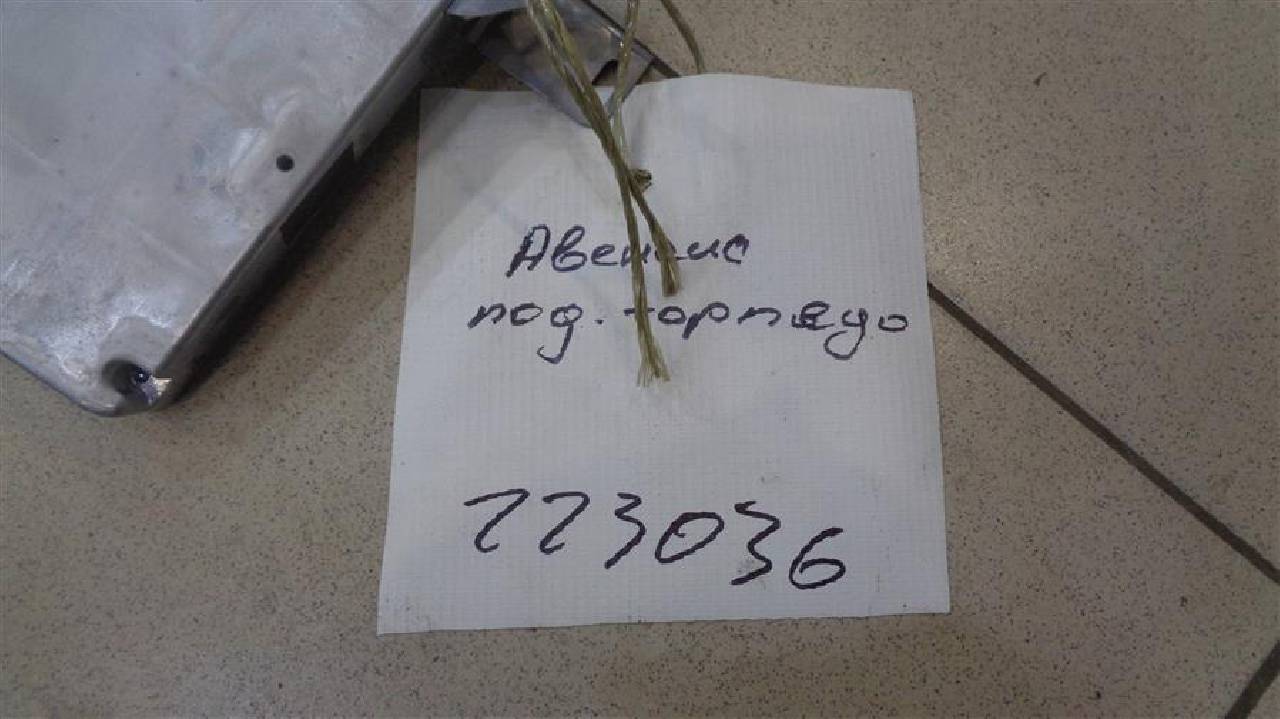 Авенсис
под. торпедо
223036